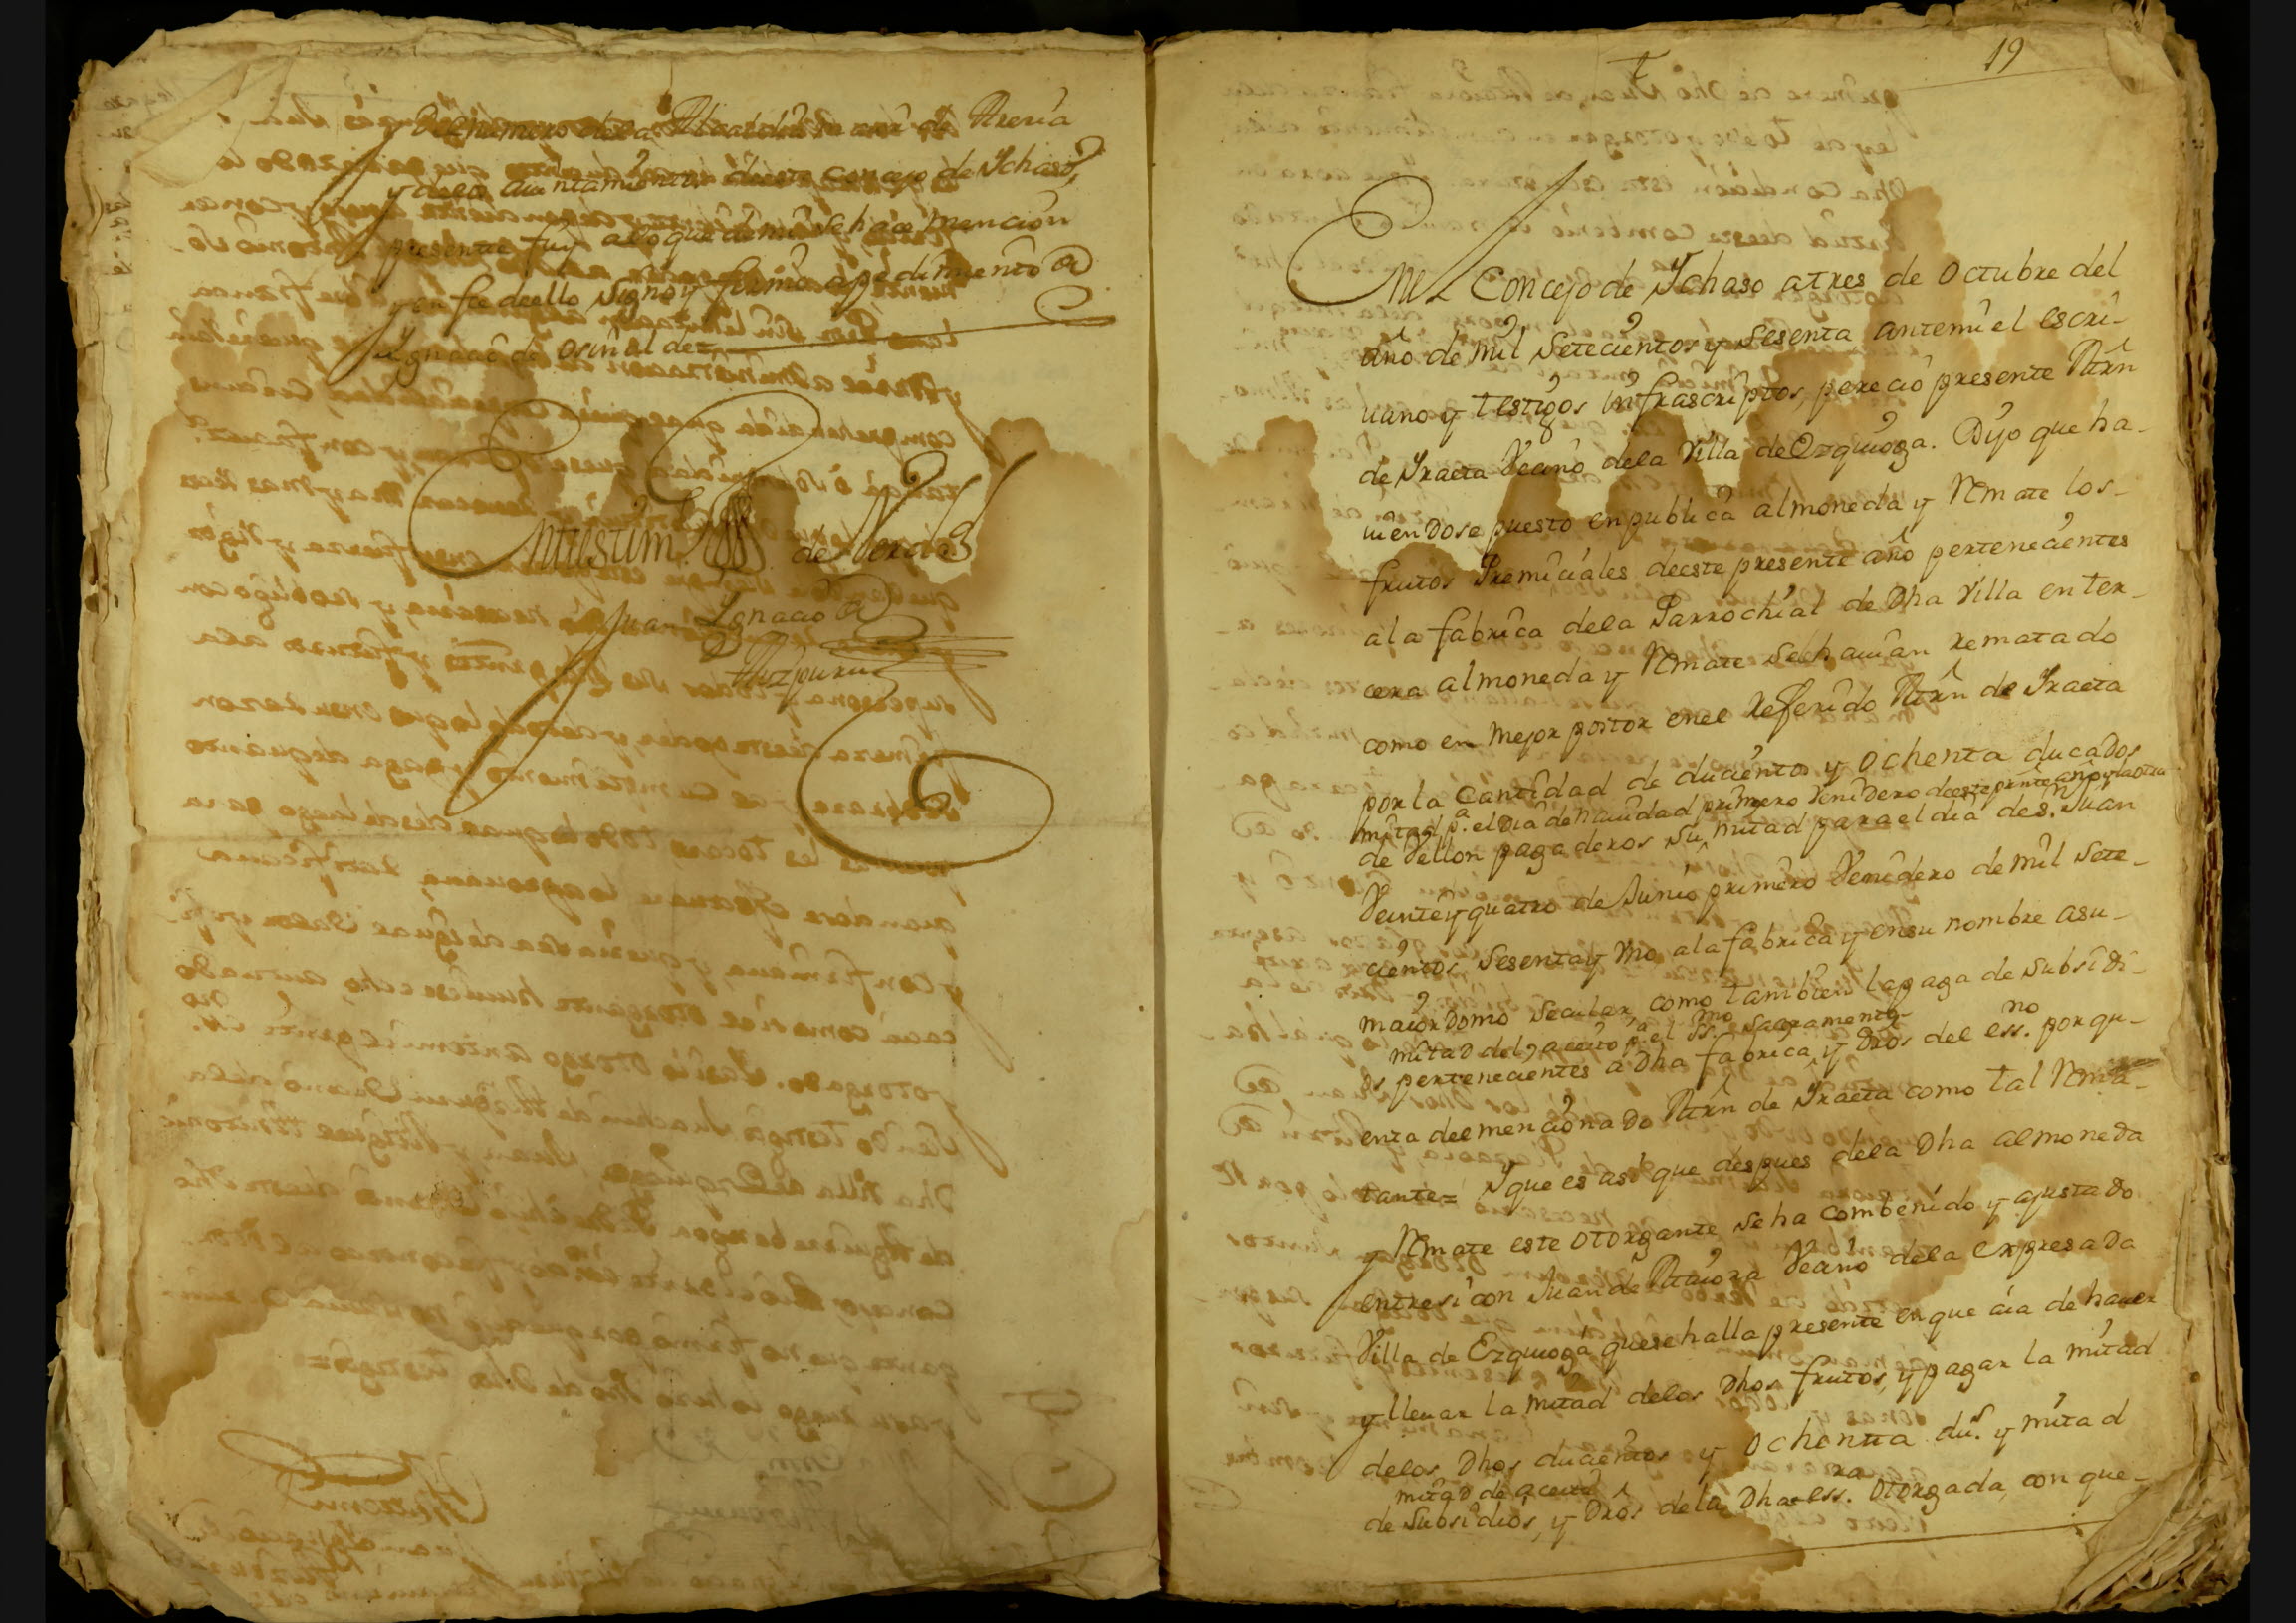 del numero dela Alcaldia maior de Areria
y delos aiuntamientos deeste Concejo de Ichaso,
presente fuy alo que de mi se hace mencion
y en fee deello signo y firmo a pedimiento de
Ignacio de Osinalde=
En testim.º de Verdad
Juan Ignacio de
Aizpuru
19
En el Concejo de Ychaso atres de Octubre del
año de mil Setecientos y Sesenta, antemi el escri-
uano y testigos infrascriptos, pereciò presente Mrñ
de Yraeta Vecino dela Villa de Ezquioga. Dijo que ha-
uiendose puesto en publica almoneda y Rmate los
frutos Premiciales deeste presente año pertenecientes
ala fabrica dela Parrochial de Dha Villa en ter-
cera almoneda y Rmate sehauian rematado
como en mejor postor enel Referido Mrñ de Yraeta
por la Cantidad de ducientos y ochenta ducados
mitad p.ª el dia de Nauidad primero Venidero deeste presnte año y la otra
de Vellon pagaderos su mitad para el dia de S.n Juan
Veinte y quatro de Junio primero Venidero de mil Sete-
cientos Sesenta y Vno ala fabrica y ensu nombre asu
maiordomo secular, como tambien la paga de Subsidi-
mitad del aceite p.ª el SS.mo Sacramento
os pertenecientes a Dha fabrica, y Dros del ess.no por qu-
enta deel mencionado Mrñ de Yraeta como tal Rma-
tante= Y que es asi que despues dela Dha almoneda
y Rmate este otorgante se ha combenido y ajustado
entresi con Juan de Vecino dela expresada
Villa de Ezquioga quese halla presente en que aia de hauer
y lleuar la mitad delos Dhos frutos, y pagar la mitad
delos Dhos ducientos y ochenta du.s y mitad
mitad de aceite
de Subsidios, y Dros dela Dha ess.ra otorgada, con que